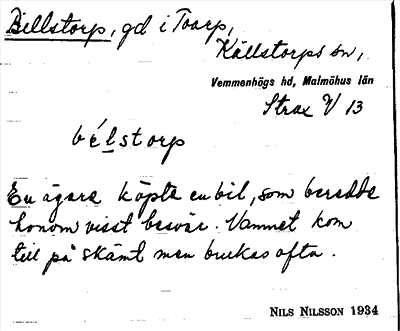 Billstorp, gd i Toarp,
Källstorps sn,
Vemmenhögs hd, Malmöhus län
Strax V 13
bélstorp
En ägare köpte en bil, som beredde
honom visst besvär. Namnet kom
till på skämt men brukas ofta.
NILS NILSSON 1934